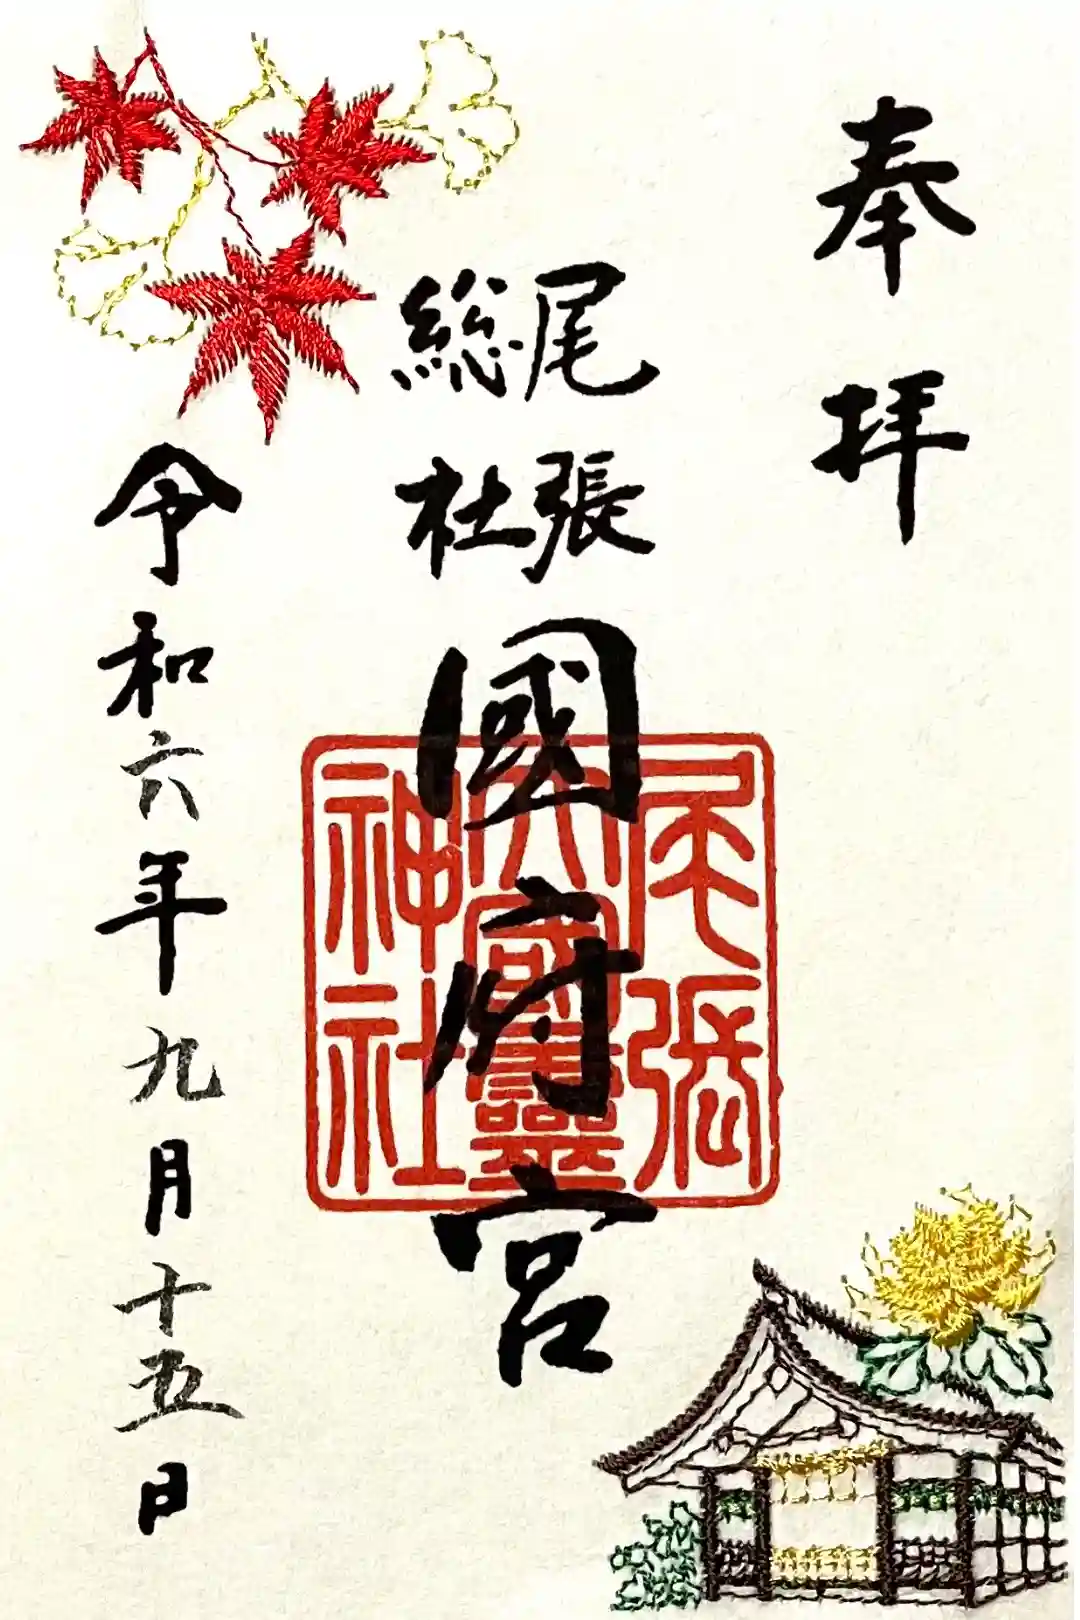 奉拝
尾張
総社
國府宮
尾張
大國霊
神社
令和六年九月十五日